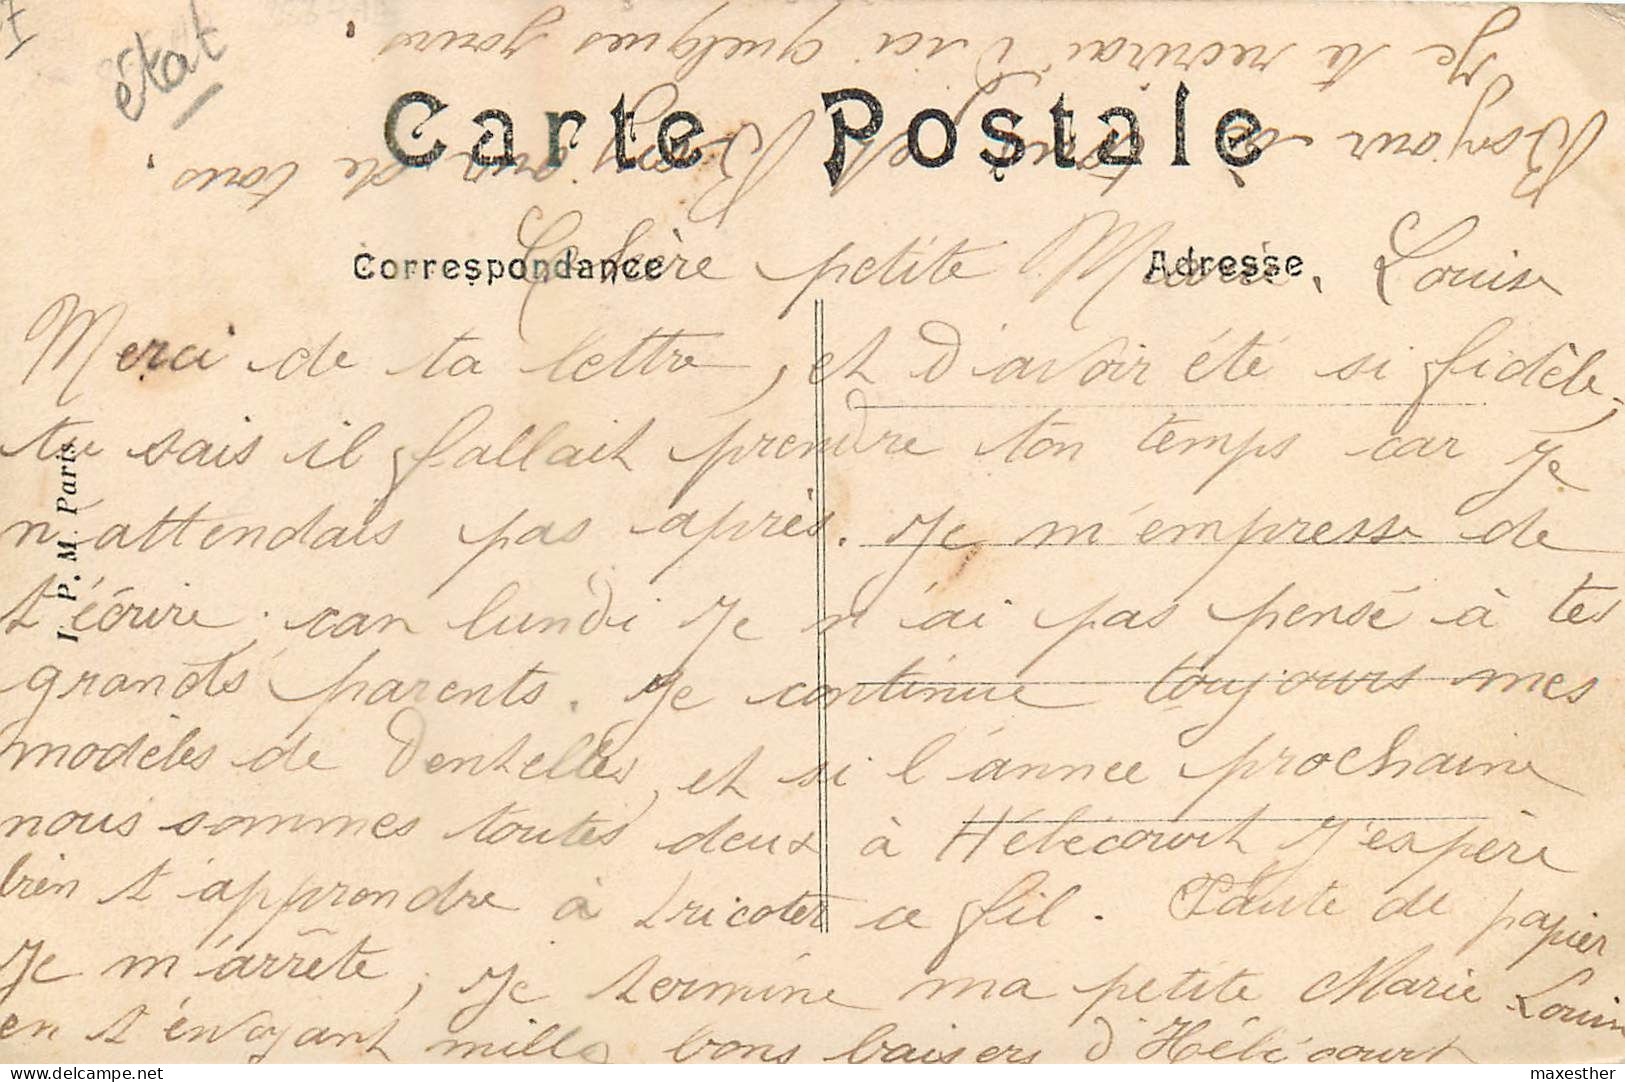 état
Je te recrirai d'ici quelques jours.
Bonjour de tous.
Carte Postale
Correspondance
Adresse
I. P. M. Paris.
Chère petite Marie. Louise
Merci de ta lettre, et d'avoir été si fidèle,
tu sais il fallait prendre ton temps car je
n'attendais pas après. Je m'empresse de
t'écrire, car lundi je n'ai pas pensé à tes
grands parents. Je continue toujours mes
modèles de dentelles, et si l'année prochaine
nous sommes toutes deux à Hébécourt j'espère
bien t'apprendre à tricoter ce fil. Faute de papier
Je m'arrête, je termine ma petite Marie Louise
en t'envoyant mille bons baisers d'Hébécourt
maxesther